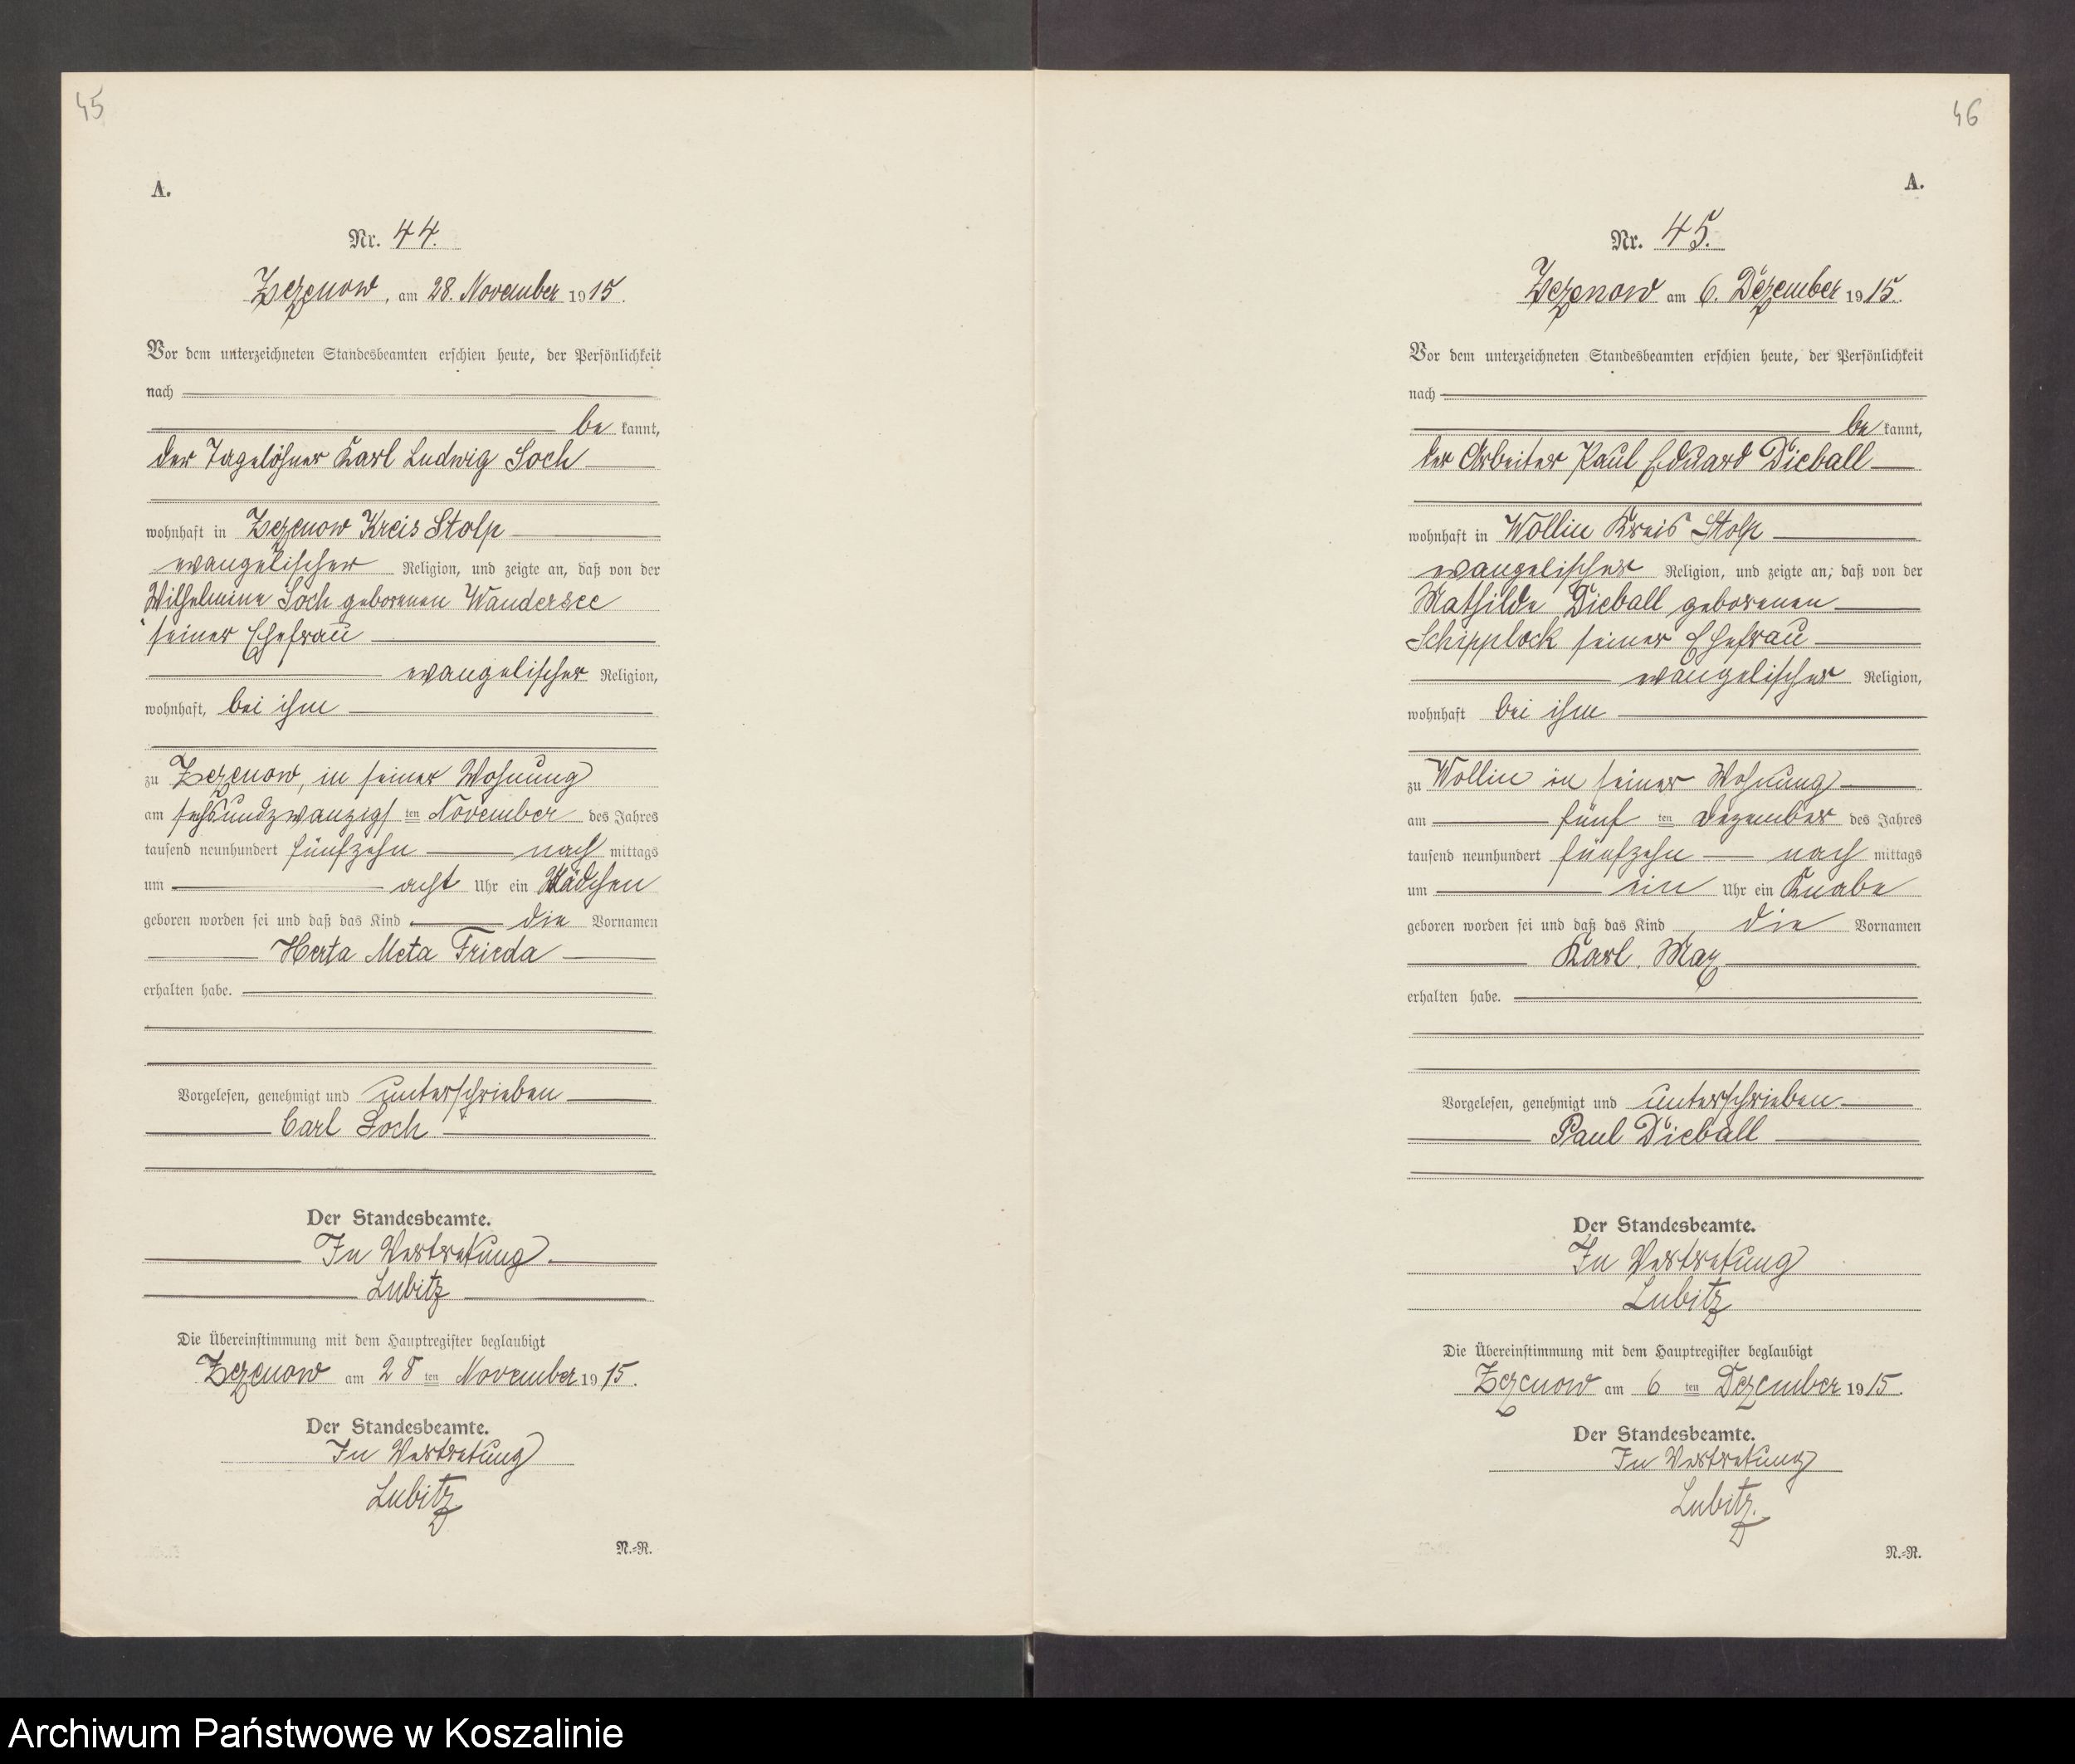 45
A.
Nr. 44.
Zezenow, am 28. November 1915.
Vor dem unterzeichneten Standesbeamten erschien heute, der Persönlichkeit
nach
be kannt,
der Tagelöhner Karl Ludwig Soch
wohnhaft in Zezenow Kreis Stolp
evangelischer Religion, und zeigte an, daß von der
Wilhelmine Soch geborenen Wandersee
seiner Ehefrau
evangelischer Religion,
wohnhaft, bei ihm
zu Zezenow, in seiner Wohnung
am sechsundzwanzigs ten November des Jahres
tausend neunhundert fünfzehn nach mittags
um acht Uhr ein Mädchen
geboren worden sei und daß das Kind die Vornamen
Herta Meta Frieda
erhalten habe.
Vorgelesen, genehmigt und unterschrieben
Carl Soch
Der Standesbeamte.
In Vertretung
Lubitz
Die Übereinstimmung mit dem Hauptregister beglaubigt
Zezenow am 28 ten November 1915.
Der Standesbeamte.
In Vertretung
Lubitz
N.=R.
46
A.
Nr. 45.
Zezenow am 6. Dezember 1915.
Vor dem unterzeichneten Standesbeamten erschien heute, der Persönlichkeit
nach
be kannt,
der Arbeiter Paul Eduard Dieball
wohnhaft in Wollin Kreis Stolp
evangelischer Religion, und zeigte an, daß von der
Mathilde Dieball geborenen
Schipplock seiner Ehefrau
evangelischer Religion,
wohnhaft bei ihm
zu Wollin in seiner Wohnung
am fünf ten Dezember des Jahres
tausend neunhundert fünfzehn nach mittags
um ein Uhr ein Knabe
geboren worden sei und daß das Kind die Vornamen
Karl, Max
erhalten habe.
Vorgelesen, genehmigt und unterschrieben
Paul Dieball
Der Standesbeamte.
In Vertretung
Lubitz
Die Übereinstimmung mit dem Hauptregister beglaubigt
Zezenow am 6 ten Dezember 1915.
Der Standesbeamte.
In Vertretung
Lubitz.
N.=R.
Archiwum Państwowe w Koszalinie